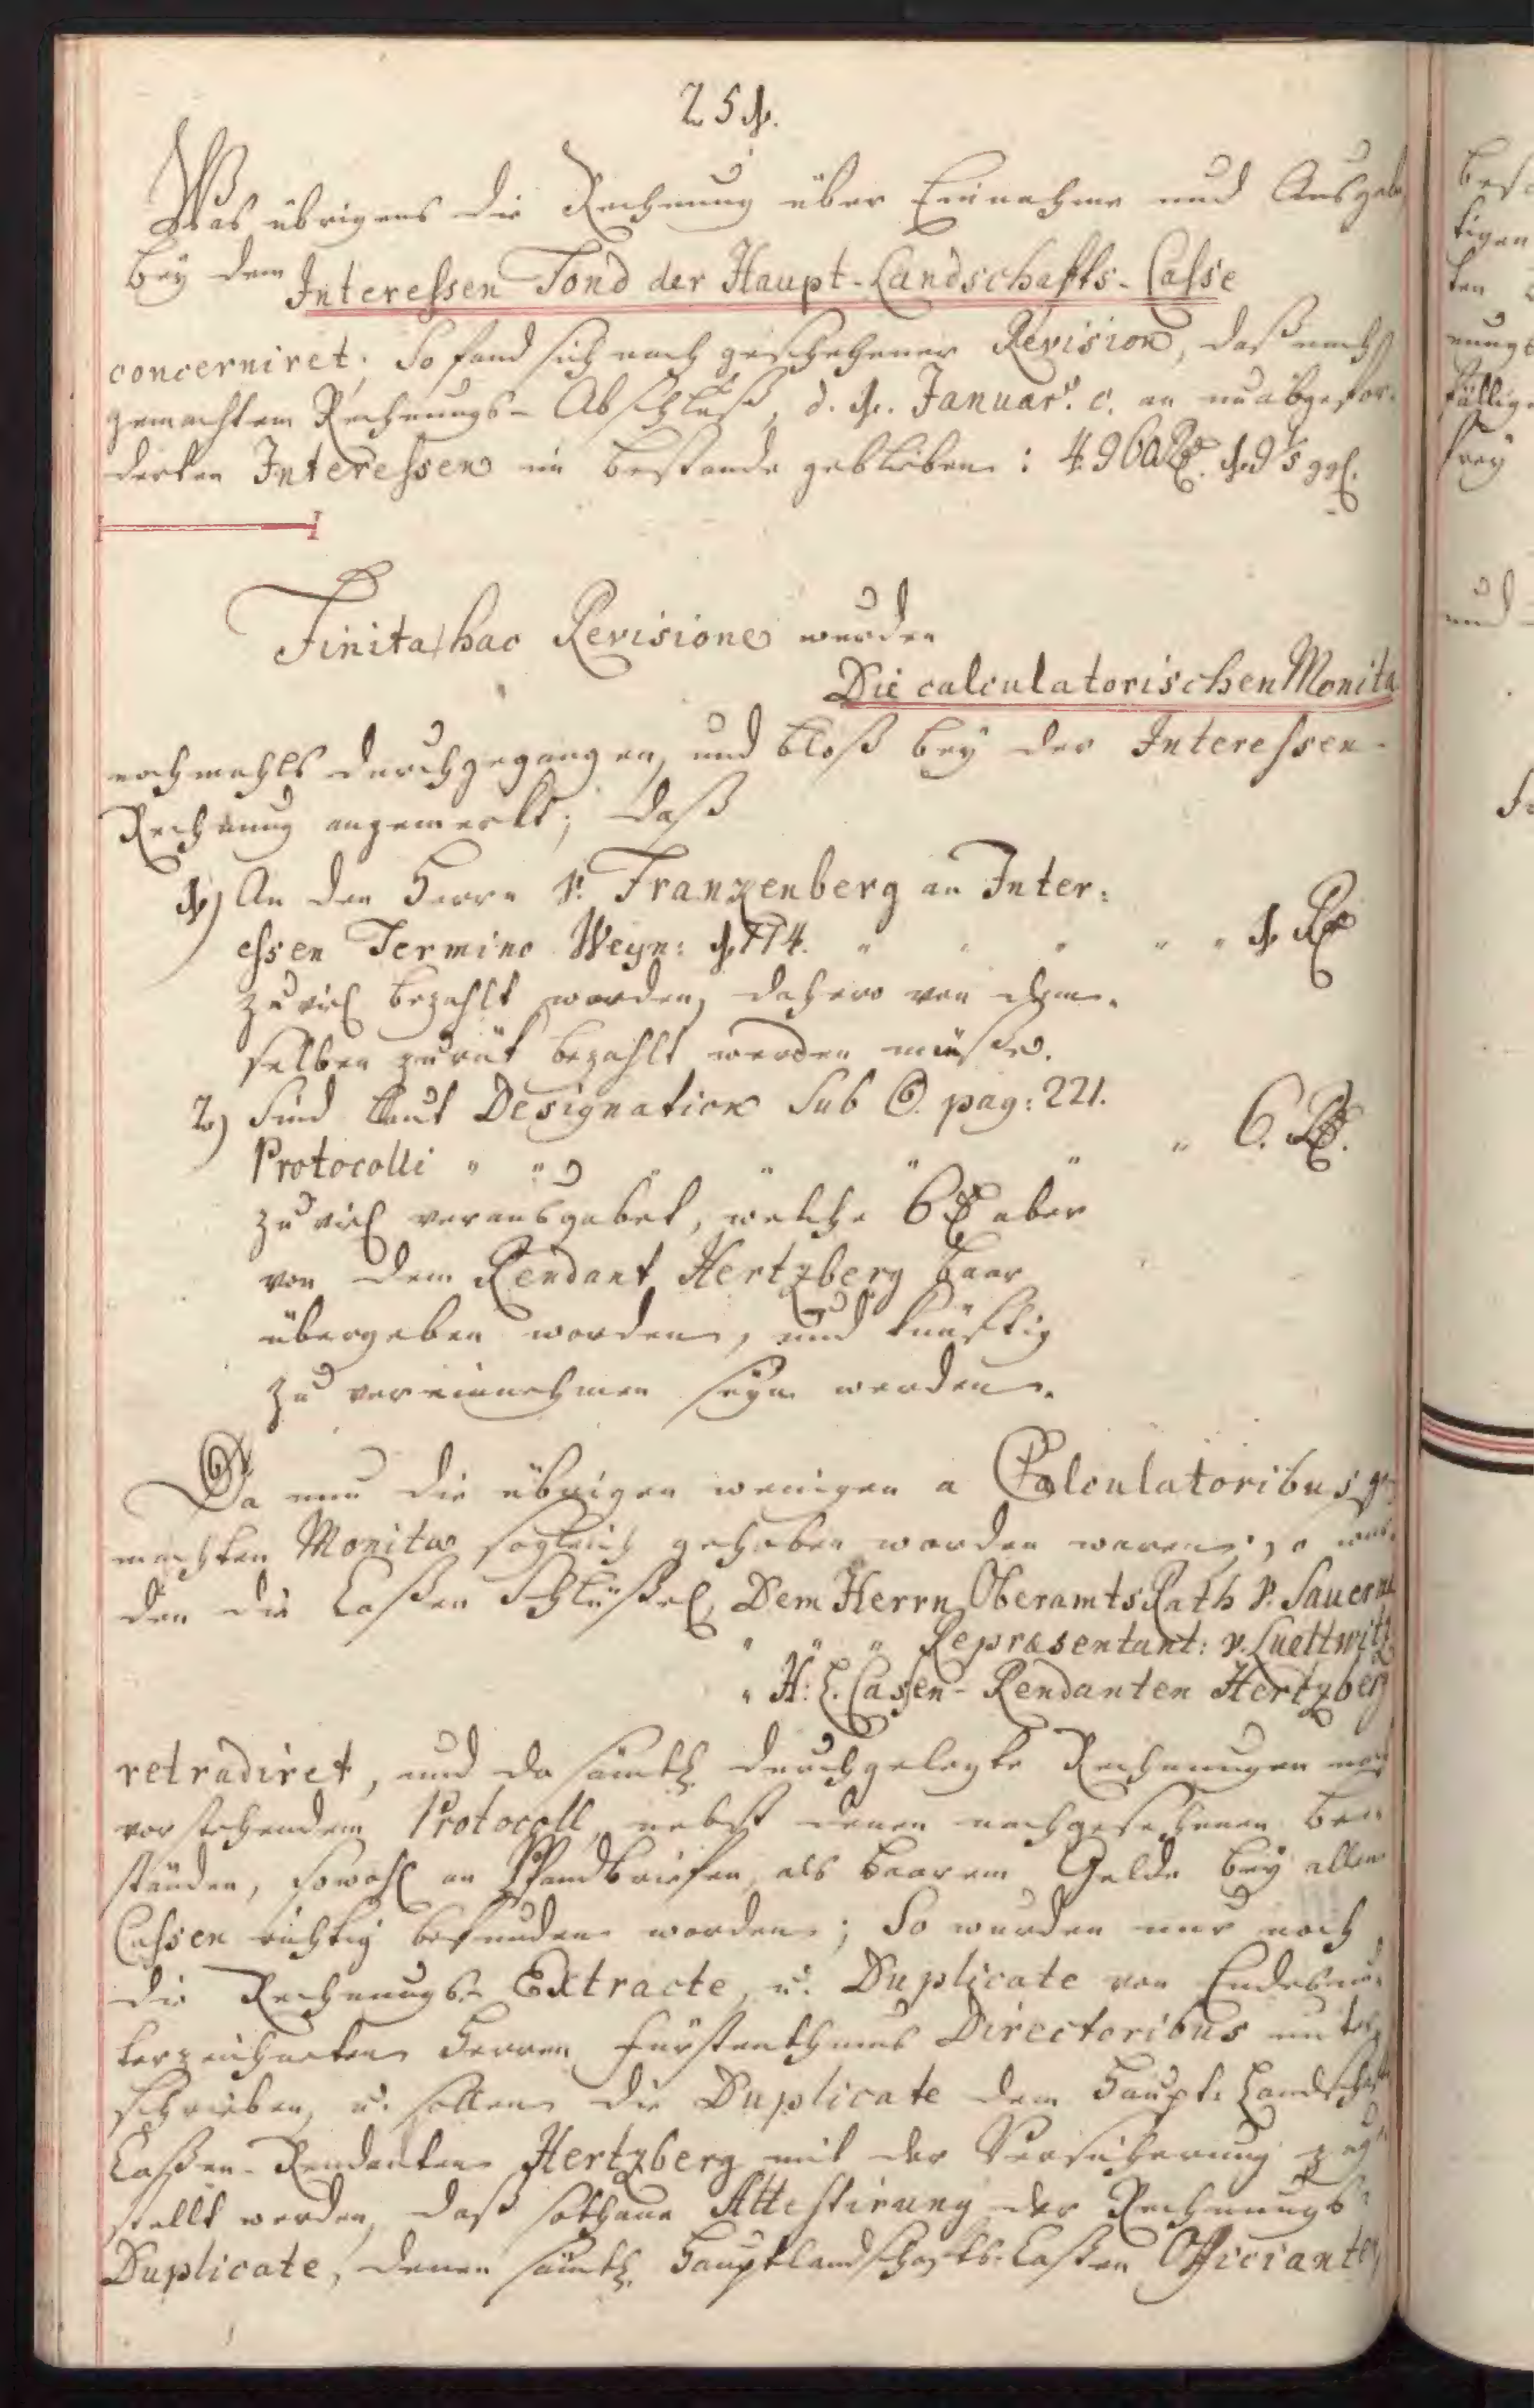 251.
Was übrigens die Rechnung über Einnahme und Ausgabe
bey dem Interessen Fond der Haupt-Landschafts-Casse
concerniret; So fand sich nach geschehener Revision, daß nach
gemachtem Rechnungs-Abschluß, d. 1. Januar: c. an unabgefor-
derten Interessen im Bestande geblieben: 4960 Rt. 19 1/5 ggl.
Finita hac Revisione wurden
Die calculatorischen Monita
nochmahls durchgegangen, und bloß bey der Interessen-
Rechnung angemerkt; daß
1.) An den Herrn v. Franzenberg an Inter:
essen Termino Weyn: 1774. " " " " " 1 Rt
zu viel bezahlt worden, dahero von dem-
selben zurük bezahlt werden müße.
2.) Sind laut Designation Sub pag: 221.
Protocolli " " " " " " " 6. Rt.
zu viel verausgabet, welche 6 Rt aber
von dem Rendant Hertzberg baar
übergeben worden, und künftig
zu vereinnehmen seyn werden.
Da nun die übrigen wenigen a Calculatoribus ge-
machten Monita sogleich gehoben worden waren; so wur-
den die Caßen Schlüßel, Dem Herrn OberamtsRath v. Sauerma
" " " Repræsentant: v. Luettwitz
" H: L. Cassen-Rendanten Hertzberg
retradiret, und da sämtl. durchgelegte Rechnungen nach
vorstehendem Protocoll, nebst denen nachgesehenen Be-
ständen, sowohl an Pfandbriefen, als baarem Gelde bey allen
Cassen richtig befunden worden; So wurden nur noch
die Rechnungs-Extracte, u. Duplicate von Endesun-
terzeichneten Herren Fürstenthums Directoribus unter-
schrieben, u. sollen die Duplicate dem Haupt-Landschafts
Caßen-Rendanten Hertzberg mit der Versicherung zuge-
stellt werden, daß sothane Attestirung der Rechnungs-
Duplicate, denen sämtl. Hauptlandschafts-Caßen Officianten